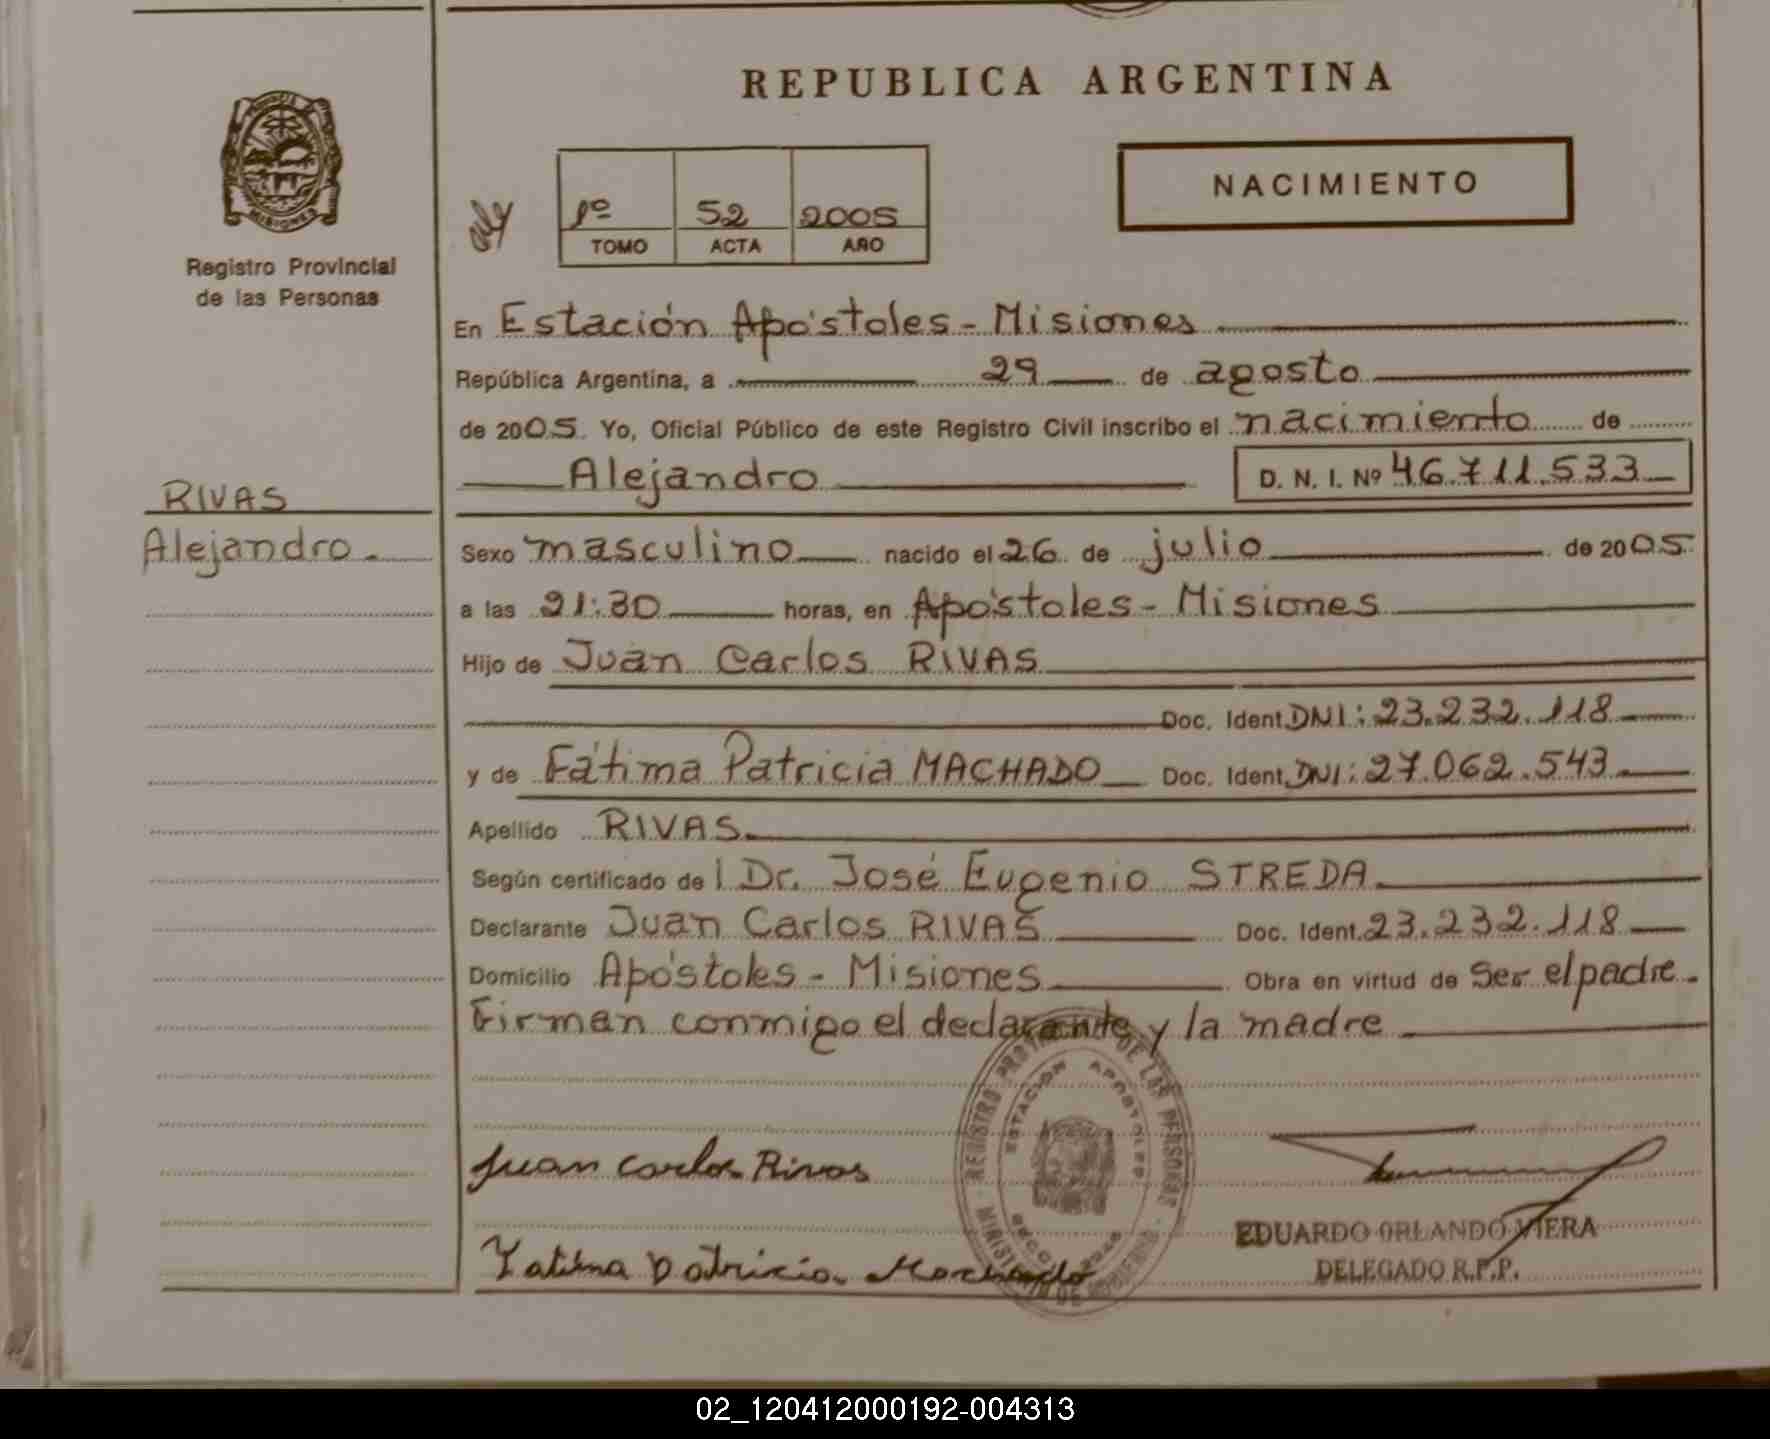 REPUBLICA ARGENTINA
NACIMIENTO
1º 52 2005
TOMO ACTA AÑO
MISIONES
Registro Provincial
de las Personas
En Estación Apóstoles - Misiones
República Argentina, a 29 de agosto
de 2005. Yo, Oficial Público de este Registro Civil inscribo el nacimiento de
Alejandro D. N. I. Nº 46.711.533
RIVAS
Alejandro.
Sexo masculino nacido el 26 de julio de 2005
a las 21:30 horas, en Apóstoles - Misiones
Hijo de Juan Carlos RIVAS
Doc. Ident. DNI: 23.232.118
y de Fátima Patricia MACHADO Doc. Ident. DNI: 27.062.543
Apellido RIVAS.
Según certificado de l Dr. José Eugenio STREDA
Declarante Juan Carlos RIVAS Doc. Ident. 23.232.118
Domicilio Apóstoles - Misiones Obra en virtud de ser el padre.
Firman conmigo el declarante y la madre
REGISTRO DE LAS PERSONAS
ESTACION APOSTOLES
Juan Carlos Rivas
Fatima Patricia Machado
EDUARDO ORLANDO VIERA
DELEGADO R.P.P.
02_120412000192-004313